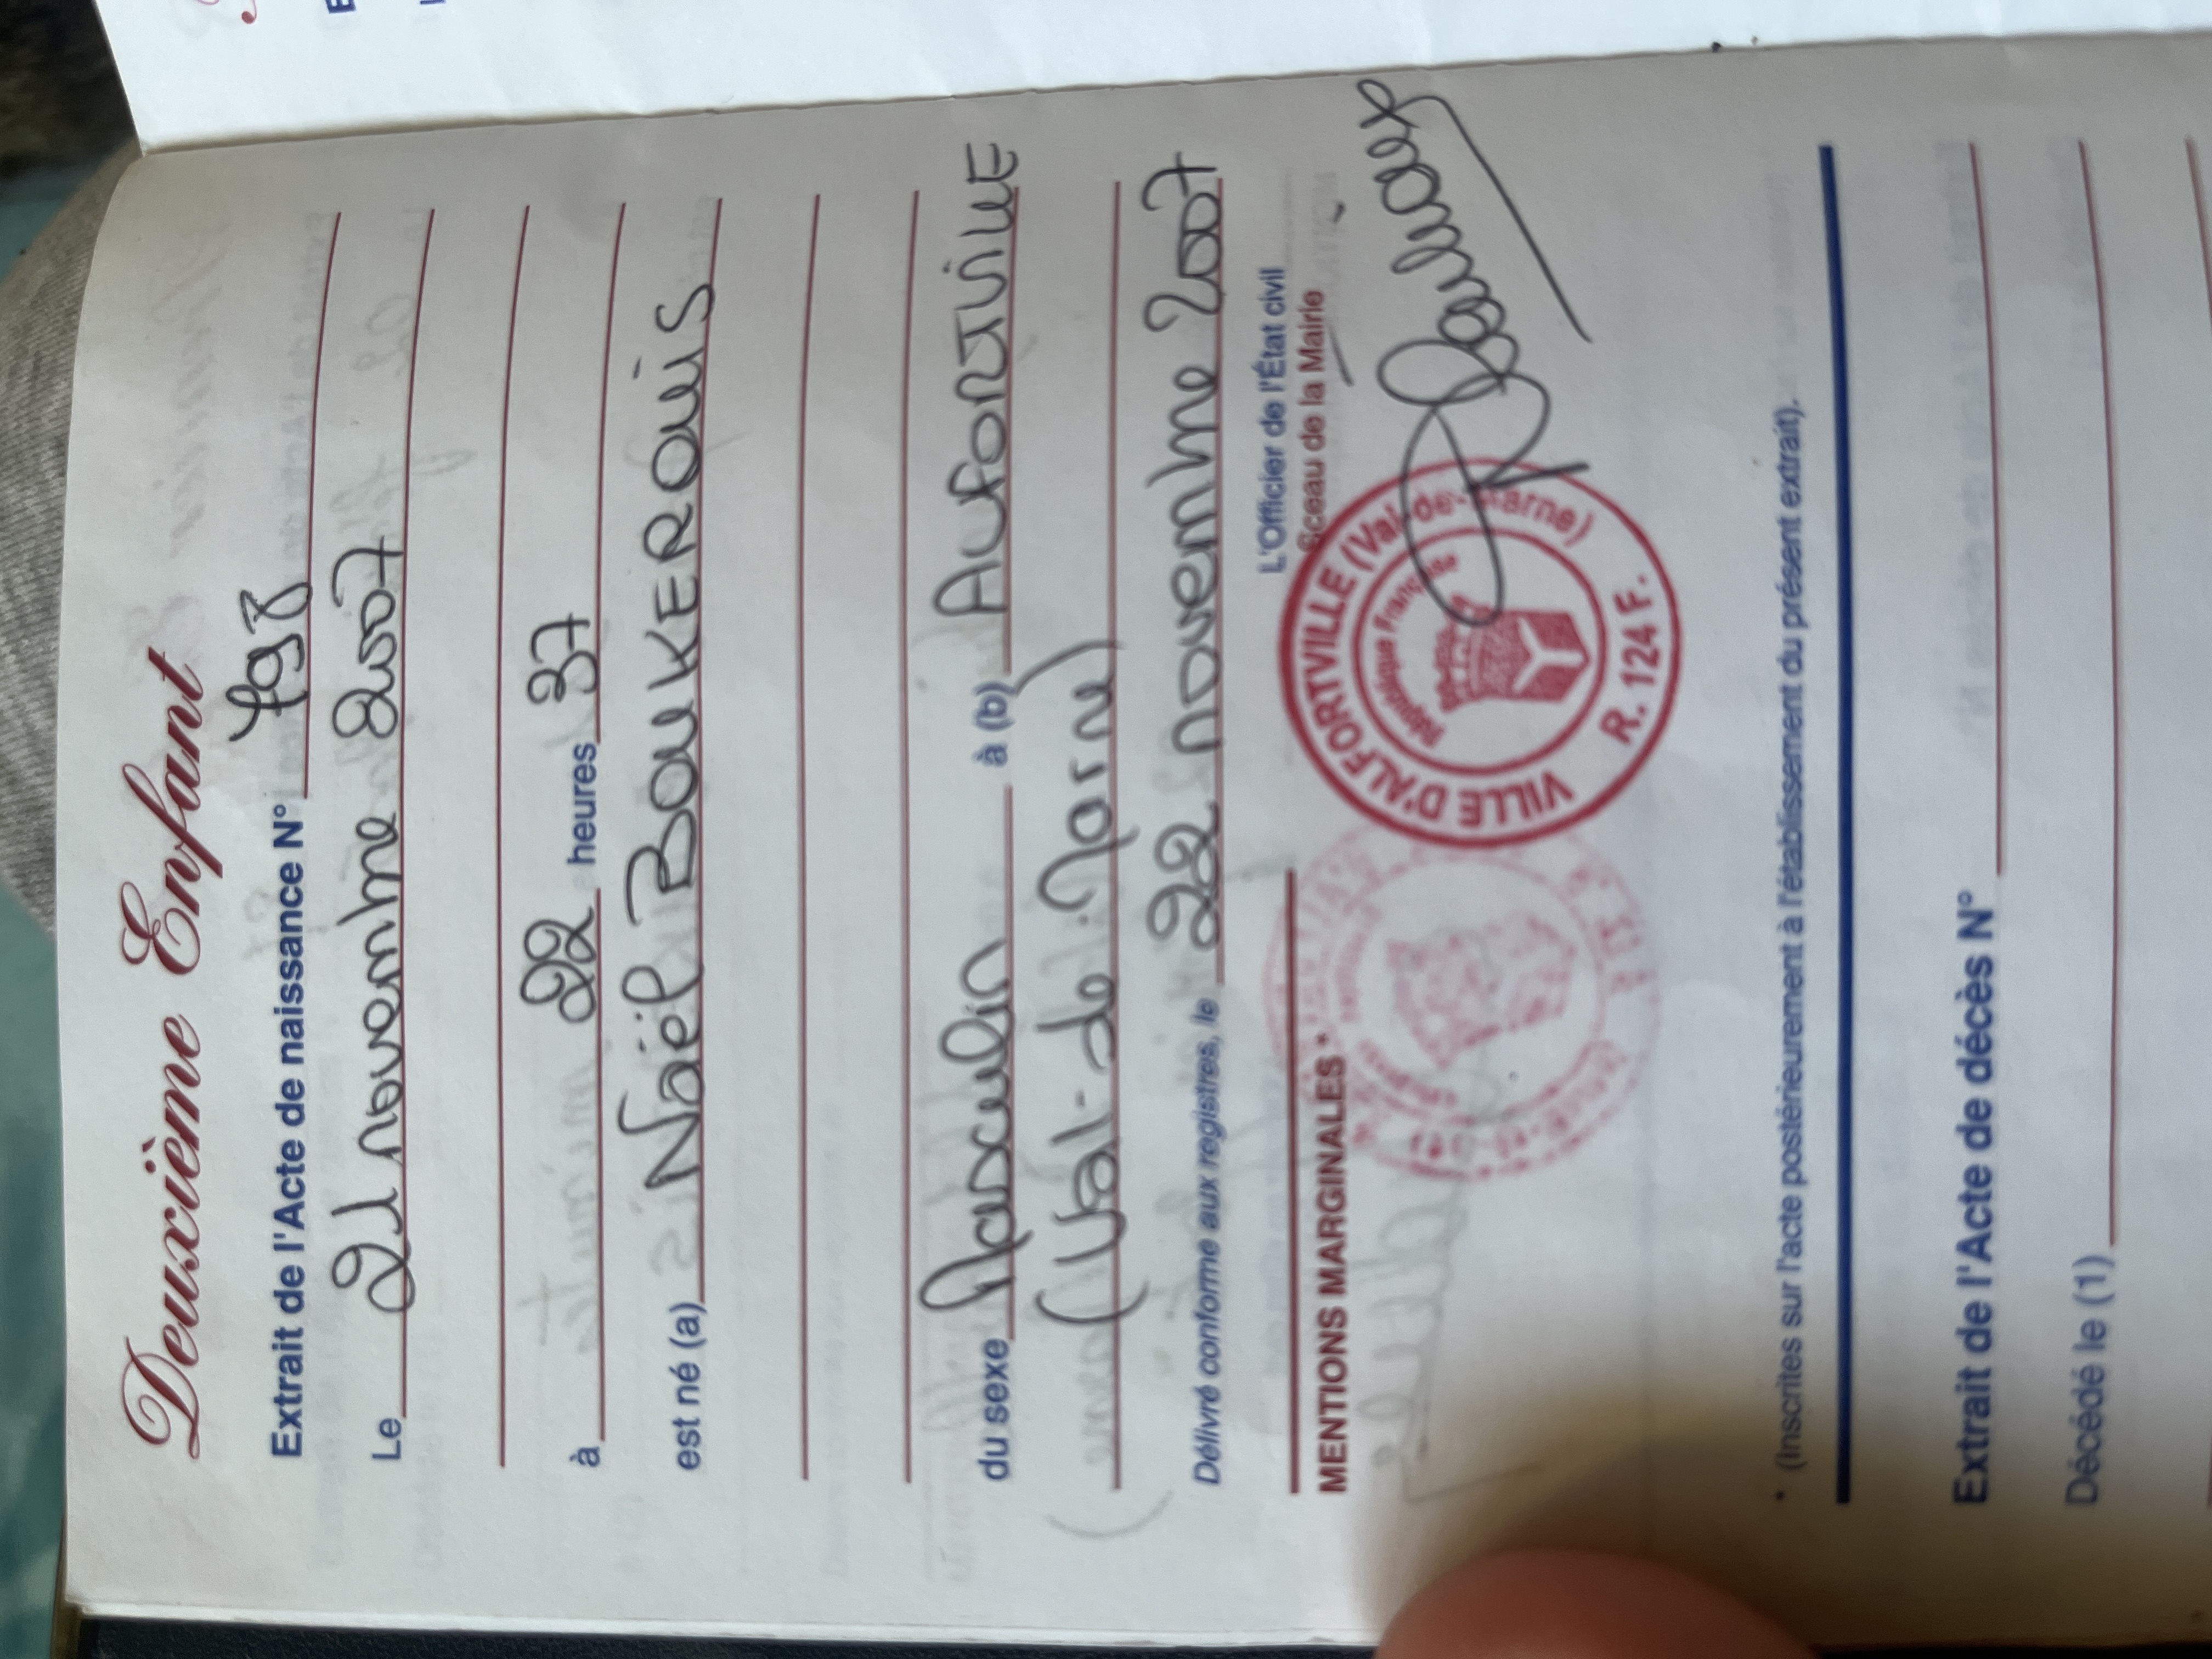 Deuxième Enfant
Extrait de l'Acte de naissance N° 798
Le 21 novembre 2007
à 22 heures 37
est né (a) Naël BOUKEROUIS
du sexe Masculin à (b) ALFORTVILLE
(Val-de-Marne)
Délivré conforme aux registres, le 22 novembre 2007
L'Officier de l'État civil
Sceau de la Mairie
MENTIONS MARGINALES *
VILLE D'ALFORTVILLE (Val-de-Marne)
République Française
R. 124 F.
* (Inscrites sur l'acte postérieurement à l'établissement du présent extrait).
Extrait de l'Acte de décès N°
Décédé le (1)